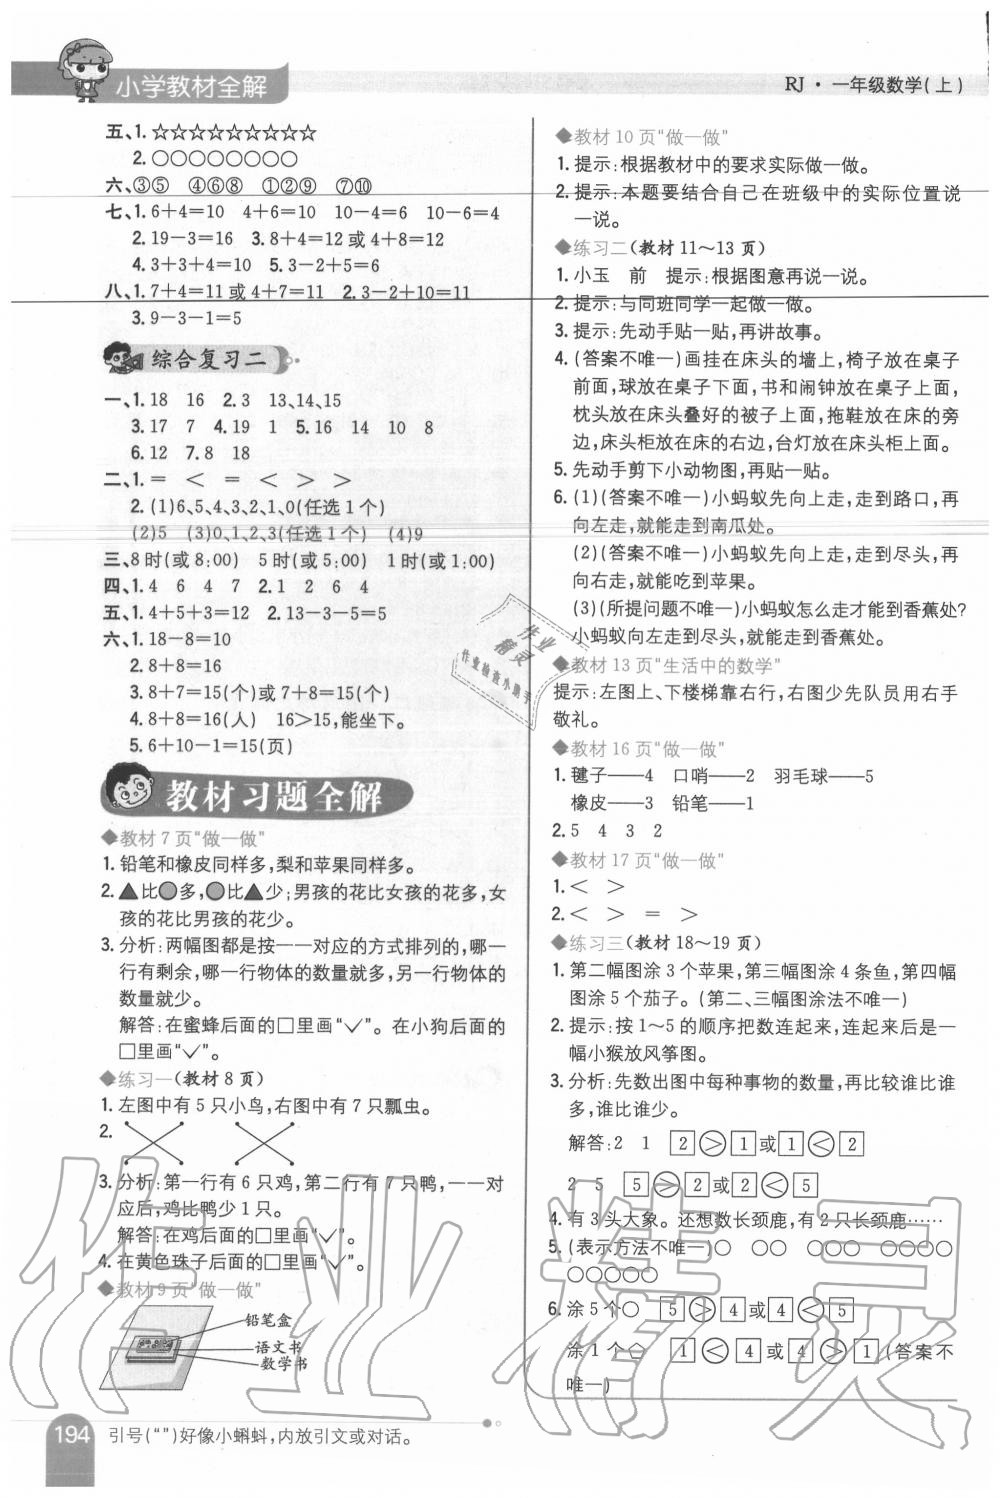 小学教材全解
RJ · 一年级数学(上)
五、1.☆☆☆☆☆☆☆☆☆
2.○○○○○○○○
六、③⑤ ④⑥⑧ ①②⑨ ⑦⑩
七、1.6+4=10 4+6=10 10-4=6 10-6=4
2.19-3=16 3.8+4=12或4+8=12
4.3+3+4=10 5.3-2+5=6
八、1.7+4=11或4+7=11 2.3-2+10=11
3.9-3-1=5
综合复习二
一、1.18 16 2.3 13、14、15
3.17 7 4.19 1 5.16 14 10 8
6.12 7.8 18
二、1.= < = < > >
2.(1)6、5、4、3、2、1、0(任选1个)
(2)5 (3)0、1、2、3(任选1个) (4)9
三、8时(或8:00) 5时(或5:00) 1时(或1:00)
四、1.4 6 4 7 2.1 2 6 4
五、1.4+5+3=12 2.13-3-5=5
六、1.18-8=10
2.8+8=16
3.8+7=15(个)或7+8=15(个)
4.8+8=16(人) 16>15,能坐下。
5.6+10-1=15(页)
教材习题全解
◆教材7页“做一做”
1.铅笔和橡皮同样多,梨和苹果同样多。
2.▲比●多,●比▲少;男孩的花比女孩的花多,女
孩的花比男孩的花少。
3.分析:两幅图都是按一一对应的方式排列的,哪一
行有剩余,哪一行物体的数量就多,另一行物体的
数量就少。
解答:在蜜蜂后面的□里画“√”。在小狗后面的
□里画“√”。
◆练习一(教材8页)
1.左图中有5只小鸟,右图中有7只瓢虫。
2.
3.分析:第一行有6只鸡,第二行有7只鸭,一一对
应后,鸡比鸭少1只。
解答:在鸡后面的□里画“√”。
4.在黄色珠子后面的□里画“√”。
◆教材9页“做一做”
铅笔盒
语文书
数学书
◆教材10页“做一做”
1.提示:根据教材中的要求实际做一做。
2.提示:本题要结合自己在班级中的实际位置说
一说。
◆练习二(教材11~13页)
1.小玉 前 提示:根据图意再说一说。
2.提示:与同班同学一起做一做。
3.提示:先动手贴一贴,再讲故事。
4.(答案不唯一)画挂在床头的墙上,椅子放在桌子
前面,球放在桌子下面,书和闹钟放在桌子上面,
枕头放在床头叠好的被子上面,拖鞋放在床的旁
边,床头柜放在床的右边,台灯放在床头柜上面。
5.先动手剪下小动物图,再贴一贴。
6.(1)(答案不唯一)小蚂蚁先向上走,走到路口,再
向左走,就能走到南瓜处。
(2)(答案不唯一)小蚂蚁先向上走,走到尽头,再
向右走,就能吃到苹果。
(3)(所提问题不唯一)小蚂蚁怎么走才能到香蕉处?
小蚂蚁向左走到尽头,就能走到香蕉处。
◆教材13页“生活中的数学”
提示:左图上、下楼梯靠右行,右图少先队员用右手
敬礼。
◆教材16页“做一做”
1.毽子——4 口哨——2 羽毛球——5
橡皮——3 铅笔——1
2.5 4 3 2
◆教材17页“做一做”
1.< >
2.< > = >
◆练习三(教材18~19页)
1.第二幅图涂3个苹果,第三幅图涂4条鱼,第四幅
图涂5个茄子。(第二、三幅图涂法不唯一)
2.提示:按1~5的顺序把数连起来,连起来后是一
幅小猴放风筝图。
3.分析:先数出图中每种事物的数量,再比较谁比谁
多,谁比谁少。
解答:2 1 2>1或1<2
2 5 5>2或2<5
4.有3头大象。还想数长颈鹿,有2只长颈鹿……
5.(表示方法不唯一)○ ○○ ○○○ ○○○○
○○○○○
6.涂5个○ 5>4或4<5
涂1个⬠ 1<4或4>1(答案不
唯一)
作业精灵
作业检查小助手
作业精灵
194
引号(“”)好像小蝌蚪,内放引文或对话。